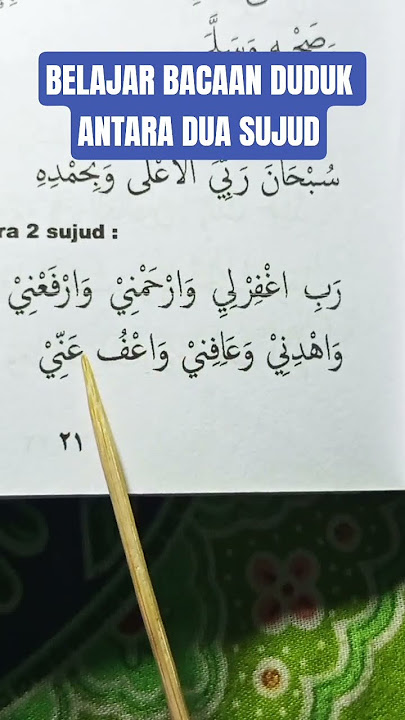 صَحْبِهِ وَسَلَّمَ
BELAJAR BACAAN DUDUK
ANTARA DUA SUJUD
سُبْحَانَ رَبِّيَ الْأَعْلَى وَبِحَمْدِهِ
ra 2 sujud :
رَبِ اغْفِرْلِي وَارْحَمْنِيْ وَارْفَعْنِيْ
وَاهْدِنِيْ وَعَافِنِيْ وَاعْفُ عَنِّيْ
٢١